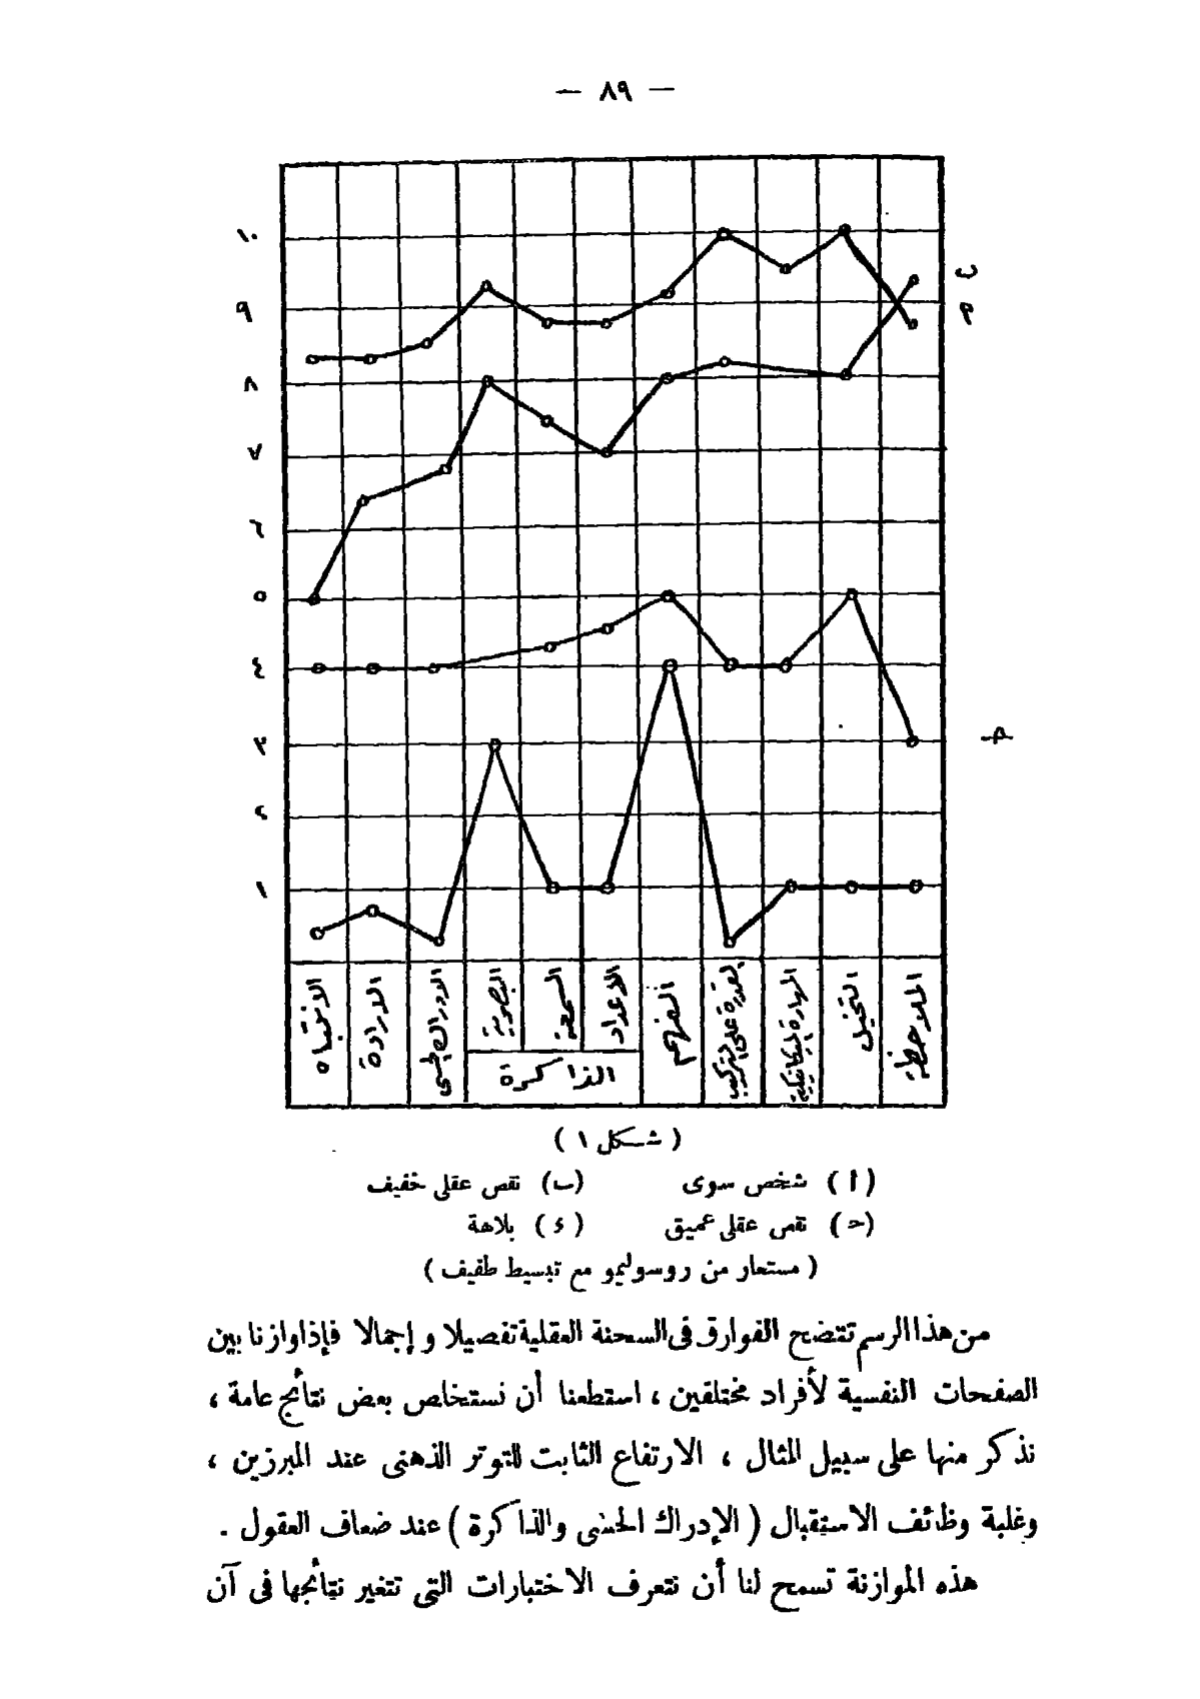 — ٨٩ —
١٠
٩
٨
٧
٦
٥
٤
٣
٢
١
ب
م
ح
الانتباه
الارادة
الادراك الحسى
البصرية
السمعية
الاعداد
الذاكرة
الفهم
القدرة على التركيب
المهارة الميكانيكية
التخيل
الملاحظة
( شكل ١ )
( ا ) شخص سوى (ب) نقص عقلى خفيف
(ح) نقص عقلى عميق ( ء ) بلاهة
( مستعار من روسوليمو مع تبسيط طفيف )
من هذا الرسم تتضح الفوارق فى السحنة العقلية تفصيلا و إجمالا فإذا وازنا بين
الصفحات النفسية لأفراد مختلفين ، استطعنا أن نستخلص بعض نتائج عامة ،
نذكر منها على سبيل المثال ، الارتفاع الثابت للتوتر الذهنى عند المبرزين ،
وغلبة وظائف الاستقبال ( الإدراك الحسى والذاكرة ) عند ضعاف العقول .
هذه الموازنة تسمح لنا أن نتعرف الاختبارات التى تتغير نتائجها فى آن